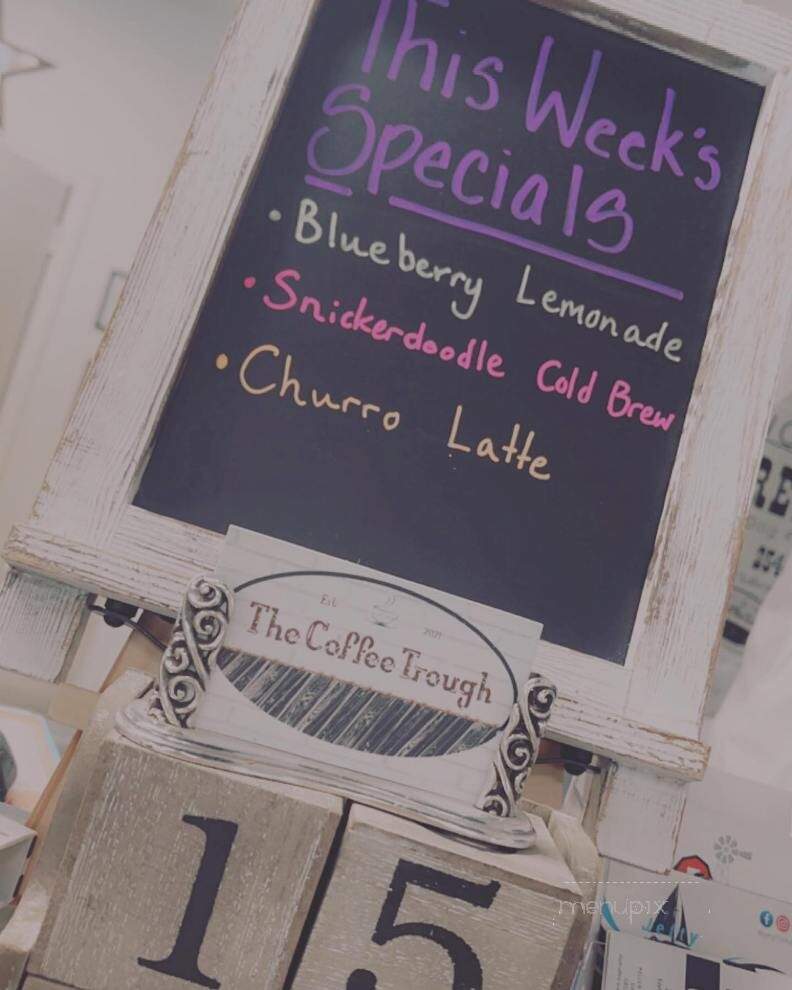 This Week's
Specials
• Blueberry Lemonade
• Snickerdoodle Cold Brew
• Churro Latte
Est 2021
The Coffee Trough
15
menupix
Jetty